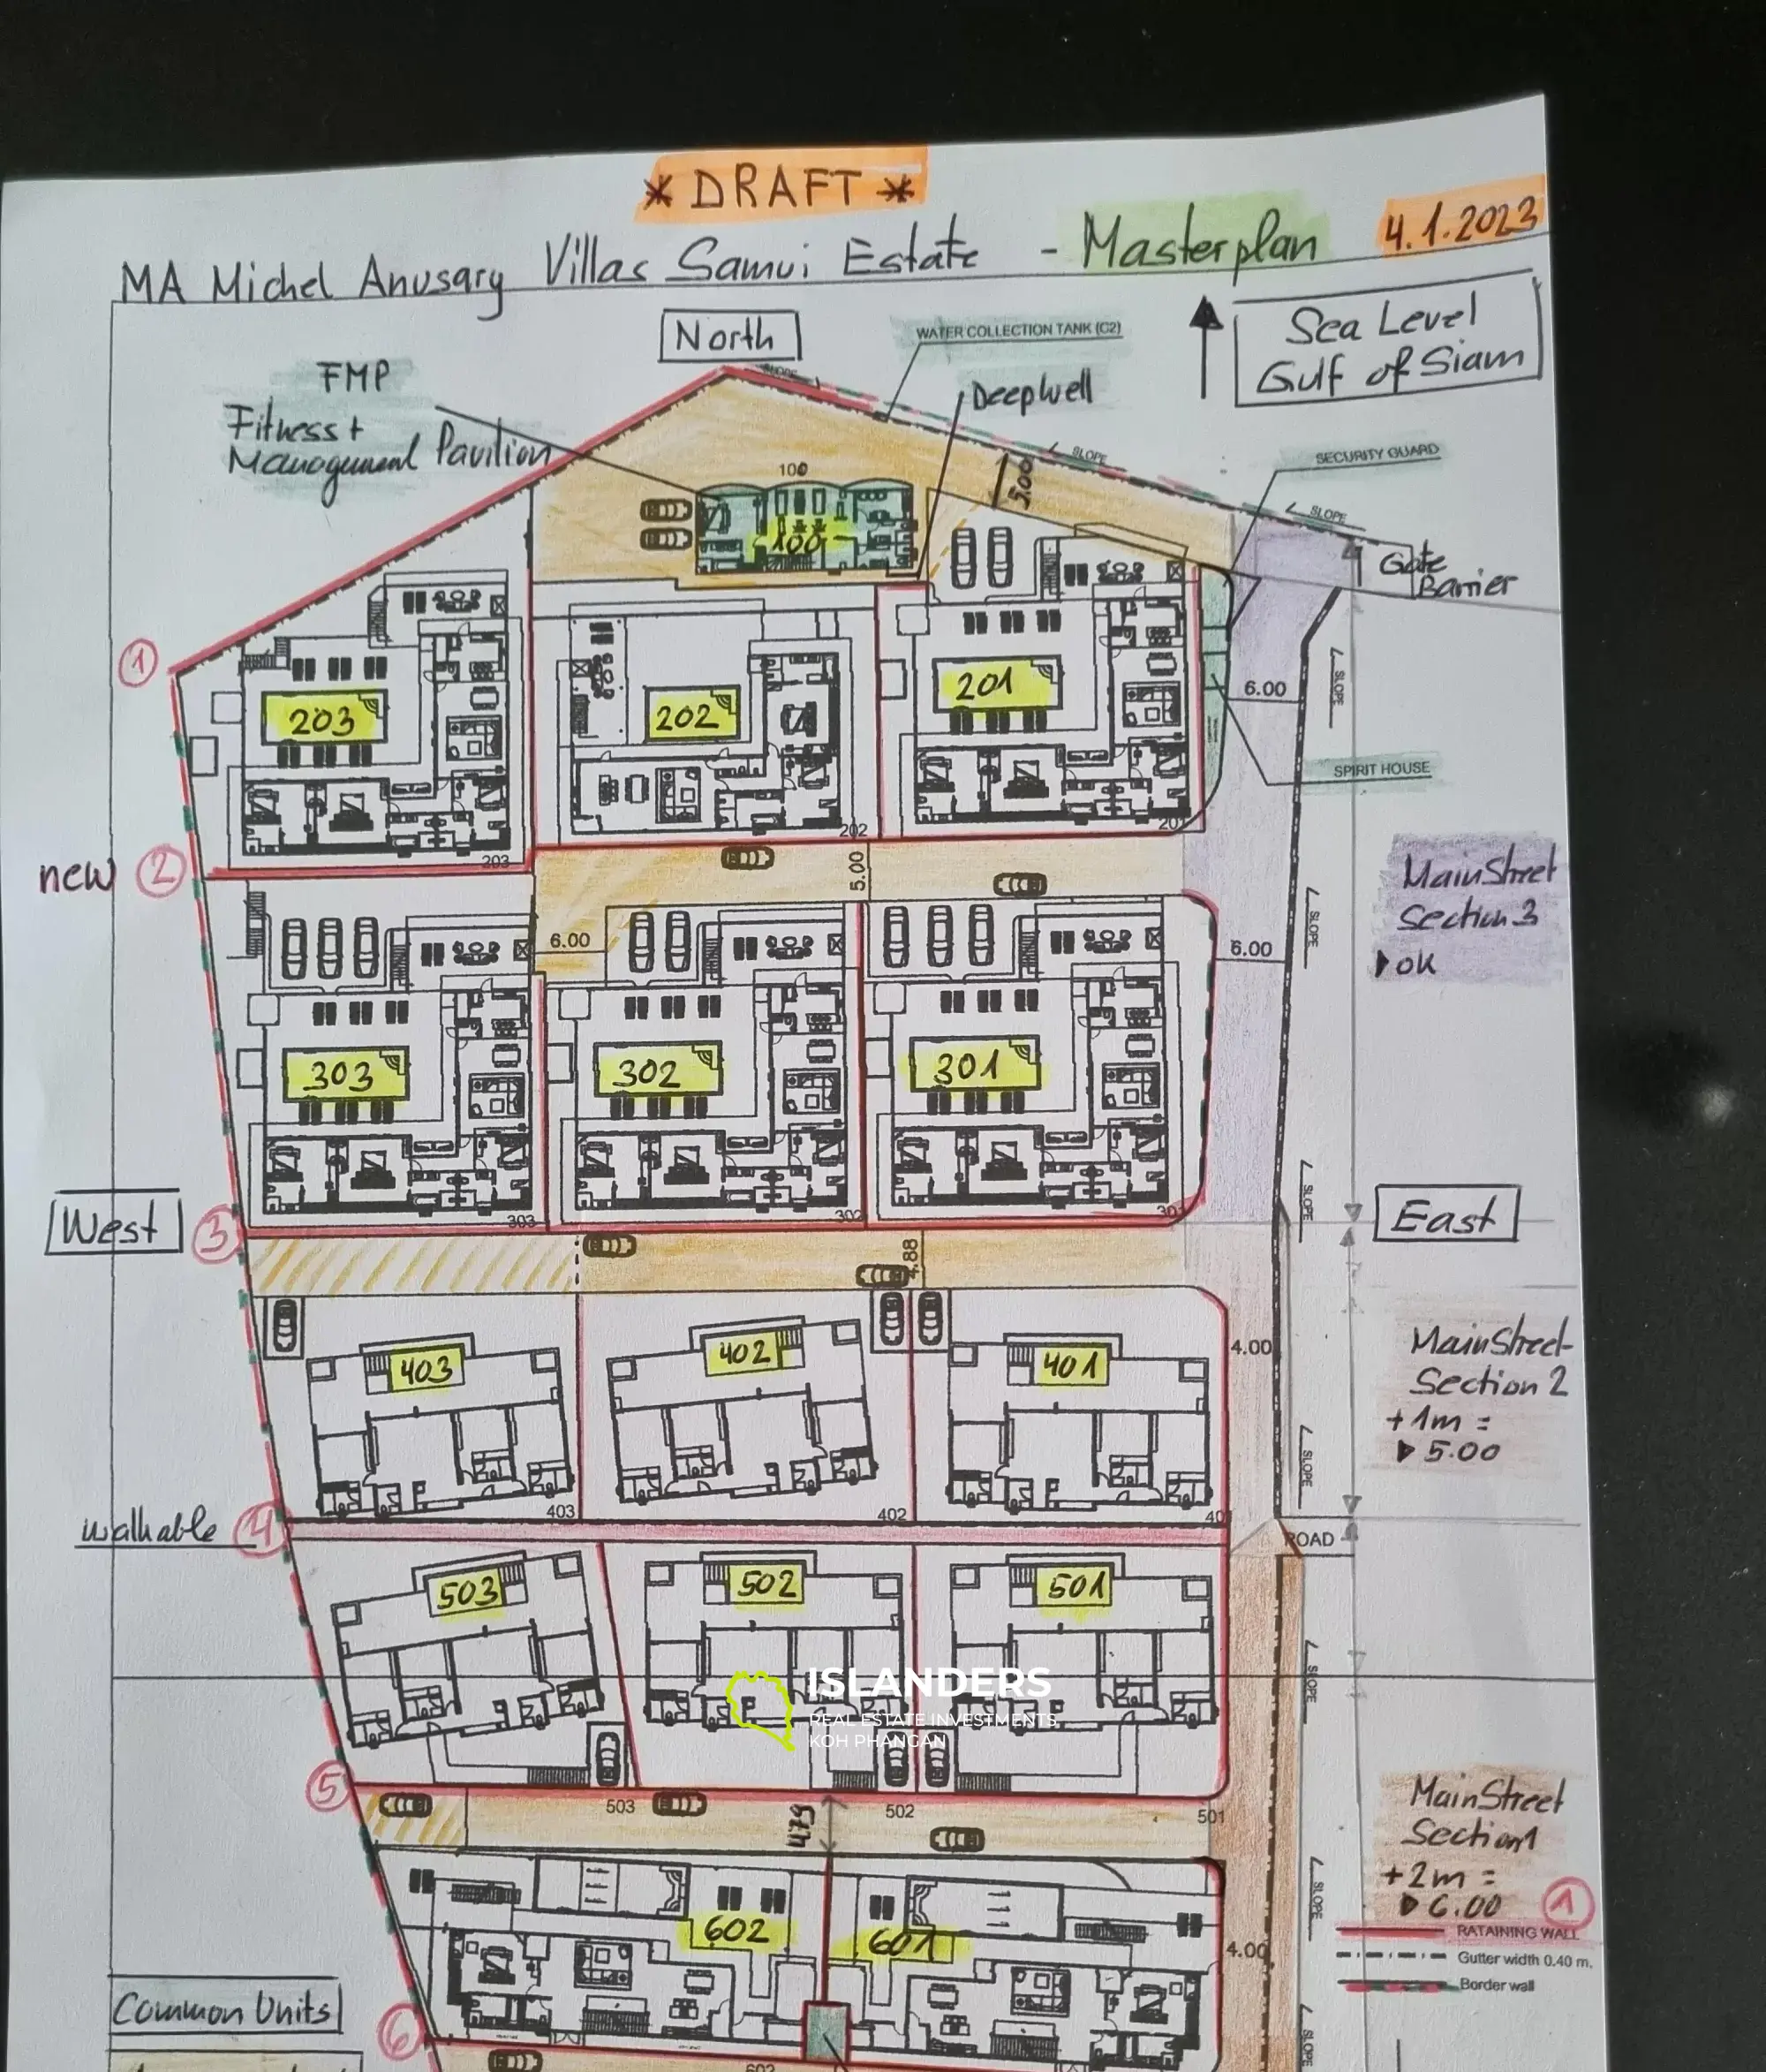 * DRAFT *
MA Michel Anusary Villas Samui Estate - Masterplan 4.1.2023
North
Sea Level
Gulf of Siam
WATER COLLECTION TANK (C2)
FMP
Fitness +
Management Pavilion
Deepwell
SLOPE
SLOPE
SECURITY GUARD
SLOPE
5.00
100
100
Gate
Barrier
1
203
202
201
6.00
SLOPE
SPIRIT HOUSE
202
201
203
new 2
5.00
MainStreet
Section 3
OK
6.00
6.00
SLOPE
303
302
301
West
3
303
302
301
SLOPE
East
4.88
403
402
401
4.00
MainStreet
Section 2
+1m =
5.00
SLOPE
403
402
40
walkable 4
ROAD
503
502
501
SLOPE
ISLANDERS
REAL ESTATE INVESTMENTS
KOH PHANGAN
5
503
502
501
4.79
MainStreet
Section 1
+2m =
6.00
1
SLOPE
602
601
4.00
RATAINING WALL
Gutter width 0.40 m.
Border wall
Common Units
6
SLOPE
602